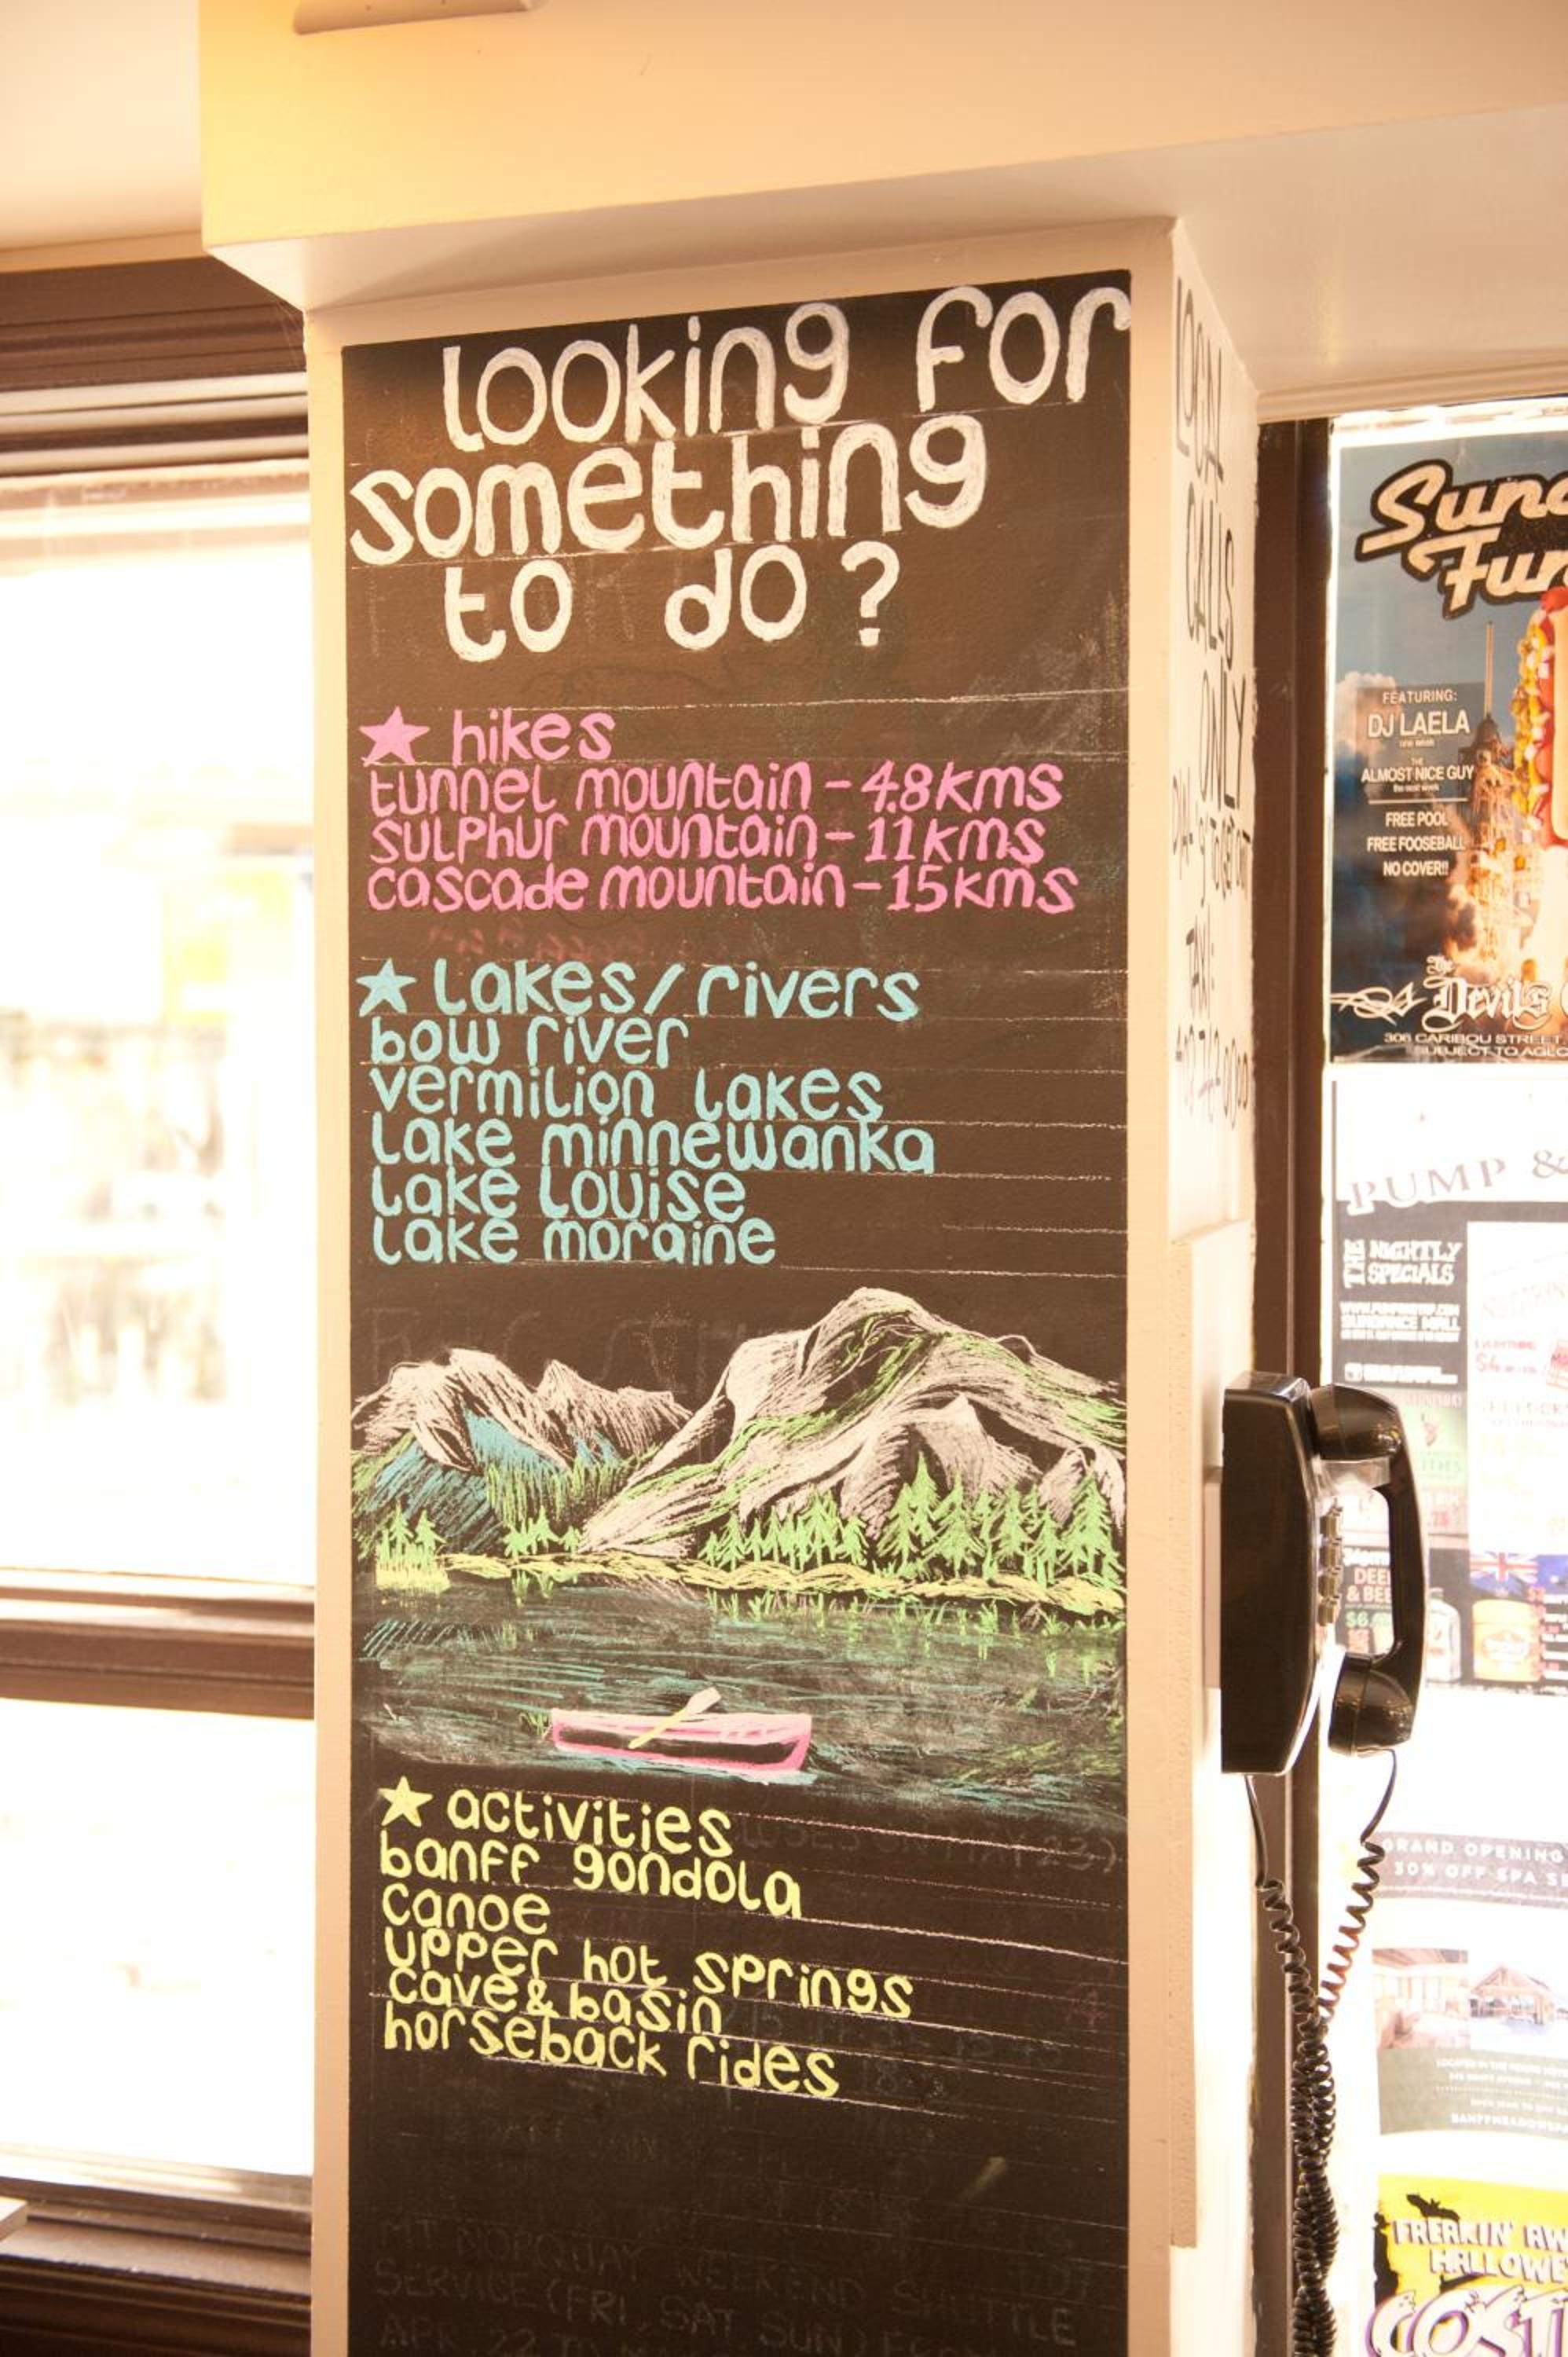 looking for
something
to do?
hikes
tunnel mountain - 4.8kms
sulphur mountain - 11kms
cascade mountain - 15kms
lakes/rivers
bow river
vermilion lakes
lake minnewanka
lake louise
lake moraine
activities
banff gondola
canoe
upper hot springs
cave & basin
horseback rides
MT NORQUAY WEEKEND SHUTTLE
SERVICE (FRI, SAT, SUN)
APR. 22
LOCAL
CALLS
ONLY
DIAL 9
TAXI:
FEATURING:
DJ LAELA
THE
ALMOST NICE GUY
the next week
FREE POOL
FREE FOOSEBALL
NO COVER!!
The
Devil's
306 CARIBOU STREET
SUBJECT TO AGLC
PUMP &
THE NIGHTLY
SPECIALS
SUNDANCE MALL
& BEE
GRAND OPENING
30% OFF SPA
FREAKIN' AW
HALLOWE
COST